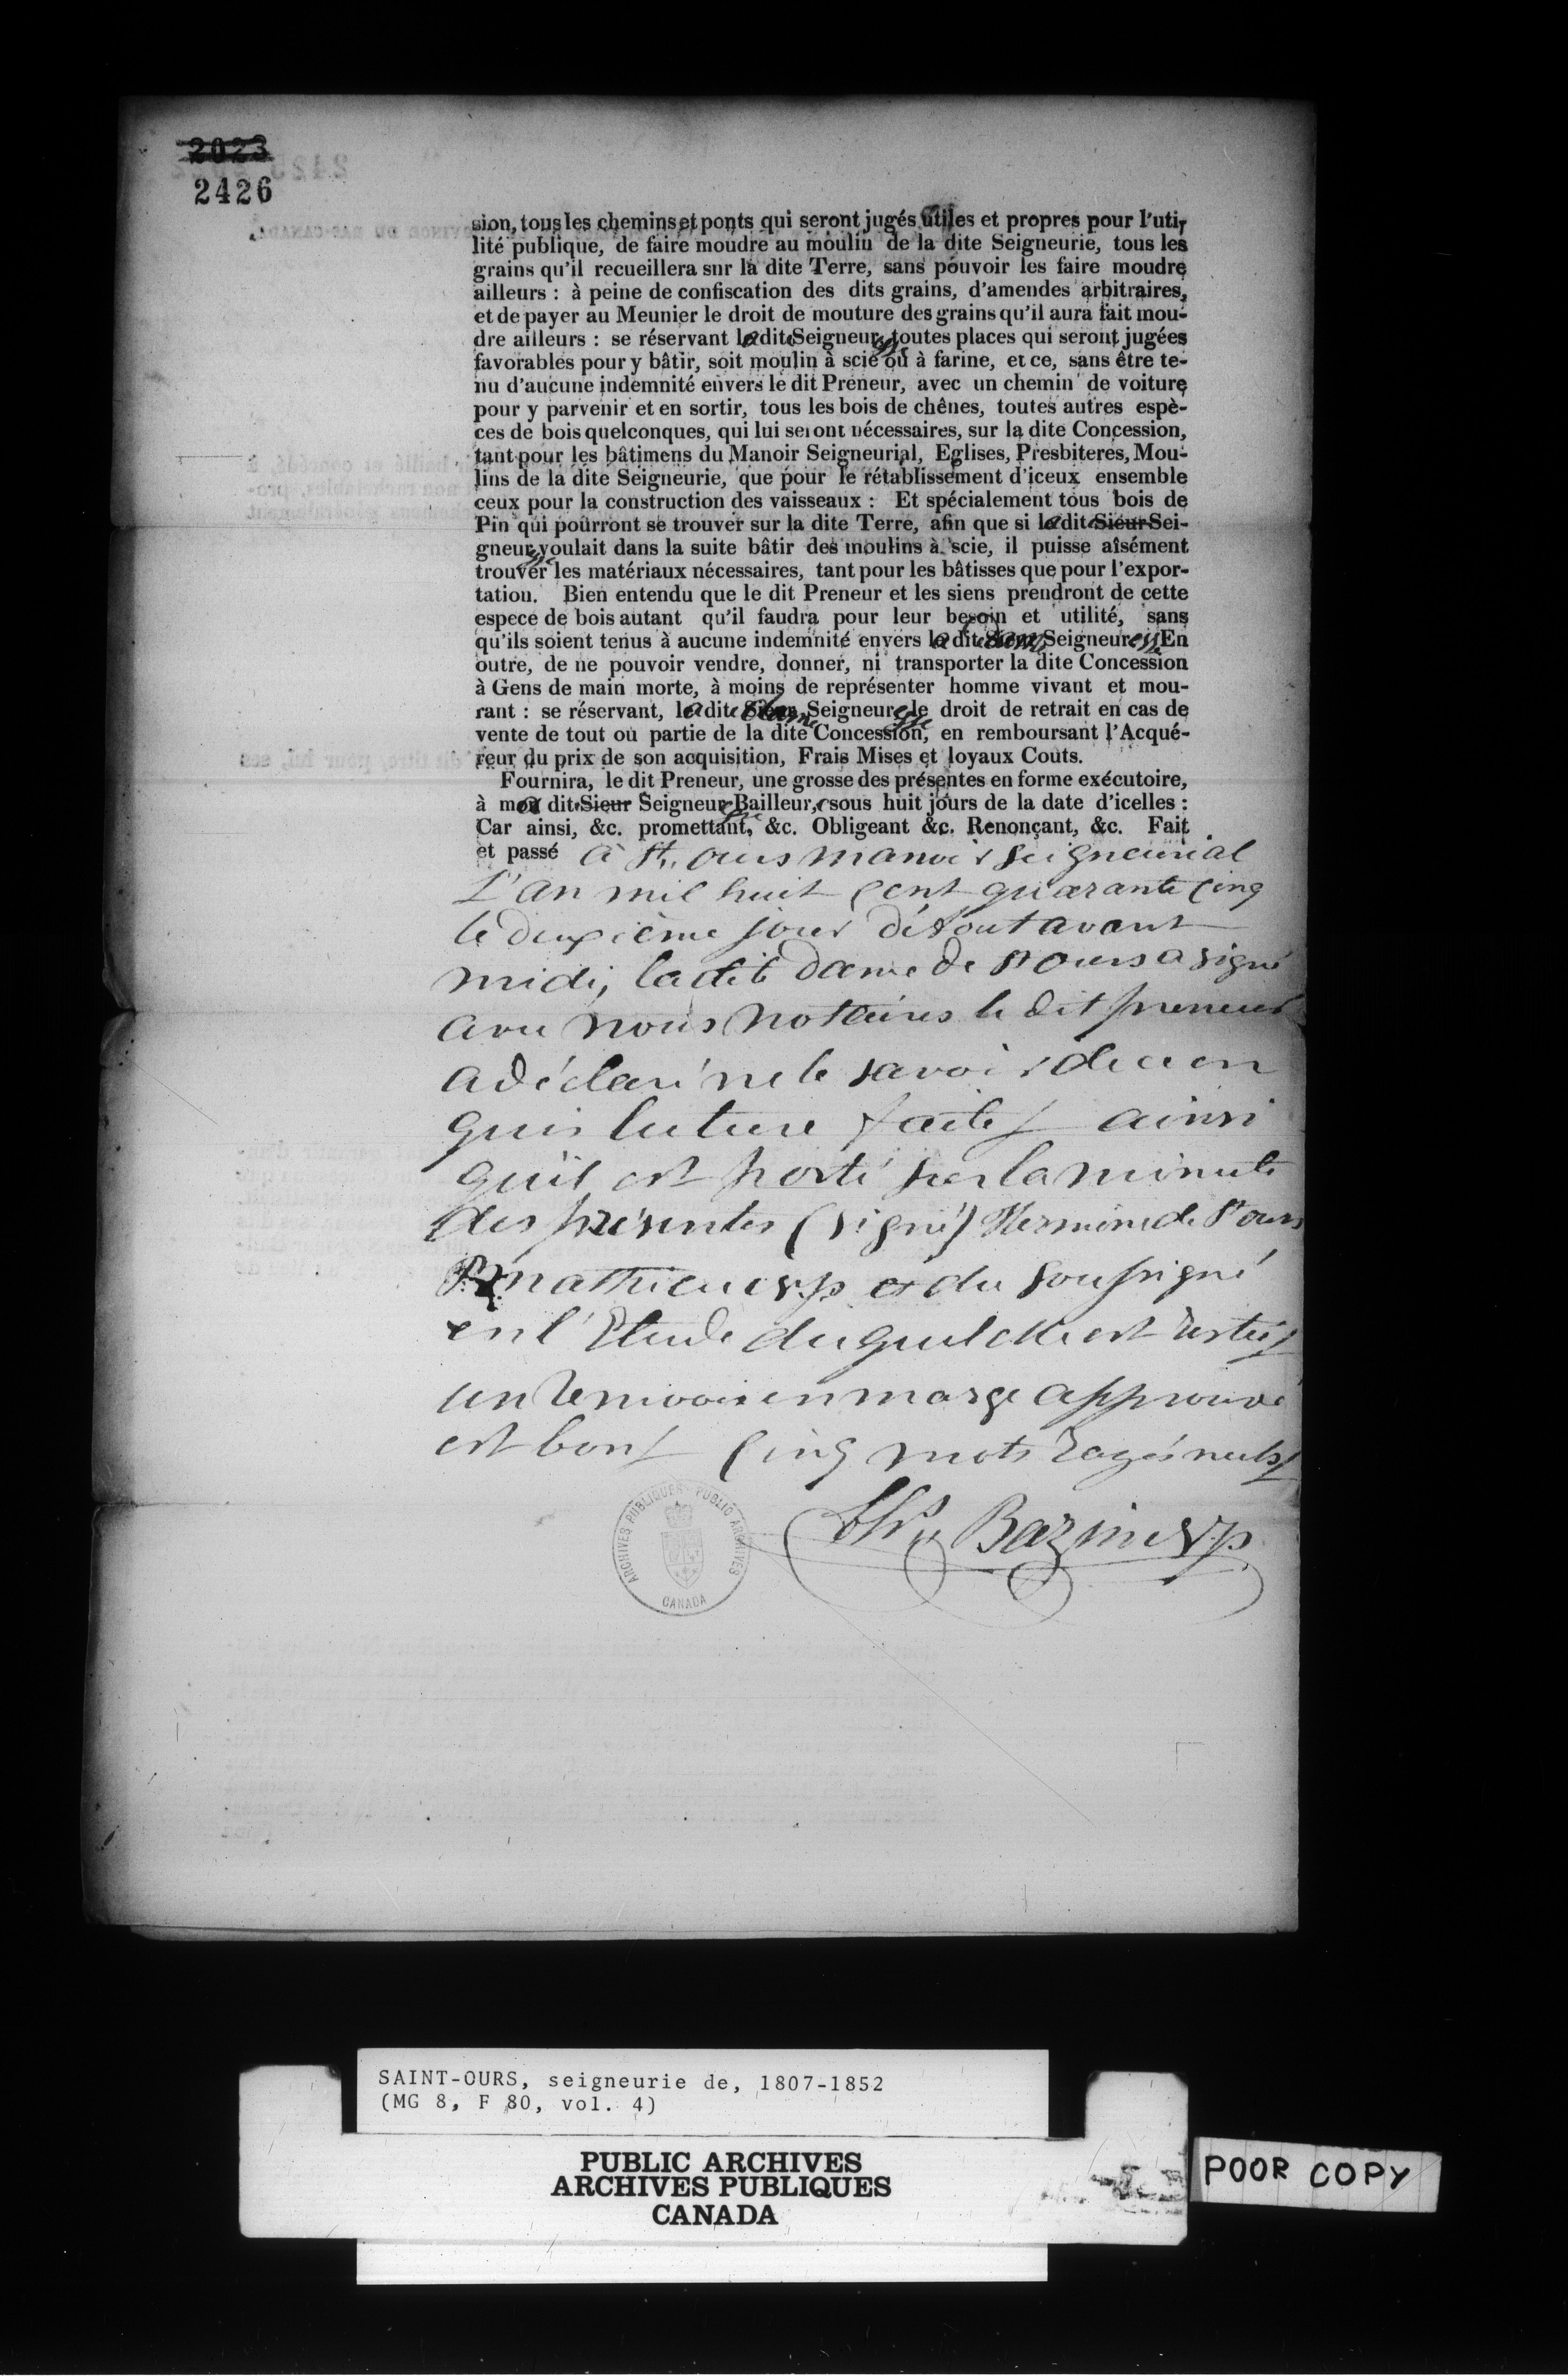 2023
2426
sion, tous les chemins et ponts qui seront jugés utiles et propres pour l'uti-
lité publique, de faire moudre au moulin de la dite Seigneurie, tous les
grains qu'il recueillera sur la dite Terre, sans pouvoir les faire moudre
ailleurs : à peine de confiscation des dits grains, d'amendes arbitraires,
et de payer au Meunier le droit de mouture des grains qu'il aura fait mou-
dre ailleurs : se réservant la dite Seigneuresse toutes places qui seront jugées
favorables pour y bâtir, soit moulin à scie ou à farine, et ce, sans être te-
nu d'aucune indemnité envers le dit Preneur, avec un chemin de voiture
pour y parvenir et en sortir, tous les bois de chênes, toutes autres espè-
ces de bois quelconques, qui lui seront nécessaires, sur la dite Concession,
tant pour les bâtimens du Manoir Seigneurial, Eglises, Presbiteres, Mou-
lins de la dite Seigneurie, que pour le rétablissement d'iceux ensemble
ceux pour la construction des vaisseaux : Et spécialement tous bois de
Pin qui pourront se trouver sur la dite Terre, afin que si la dite Sieur Sei-
gneuresse voulait dans la suite bâtir des moulins à scie, il puisse aîsément
trouver les matériaux nécessaires, tant pour les bâtisses que pour l'expor-
tation. Bien entendu que le dit Preneur et les siens prendront de cette
espece de bois autant qu'il faudra pour leur besoin et utilité, sans
qu'ils soient tenus à aucune indemnité envers la dite Dame Seigneuresse En
outre, de ne pouvoir vendre, donner, ni transporter la dite Concession
à Gens de main morte, à moins de représenter homme vivant et mou-
rant : se réservant, la dite Dame Seigneuresse le droit de retrait en cas de
vente de tout ou partie de la dite Concession, en remboursant l'Acqué-
reur du prix de son acquisition, Frais Mises et loyaux Couts.
Fournira, le dit Preneur, une grosse des présentes en forme exécutoire,
à ma dite Sieur Seigneuresse Bailleur, sous huit jours de la date d'icelles :
Car ainsi, &c. promettant, &c. Obligeant &c. Renonçant, &c. Fait
et passé à St. ours manoir seigneurial
L'an mil huit cent quarante cinq
le deuxième jour d'Aout avant
midi, la dite Dame de St Ours a signé
avec nous Notaires le dit preneur
a déclaré ne le savoir de ce en
quis lecture faite/ ainsi
qu'il est porté sur la minute
des présentes (signé) Hermine de St ours
Mathieu N.P. et du soussigné
en l'Etude duquel elle est restée/
un renvoi en marge approuvé
est bon/ Cinq mots rayés nuls/
Bazin N.P.
ARCHIVES PUBLIQUES PUBLIC ARCHIVES
CANADA
SAINT-OURS, seigneurie de, 1807-1852
(MG 8, F 80, vol. 4)
PUBLIC ARCHIVES
ARCHIVES PUBLIQUES
CANADA
POOR COPY